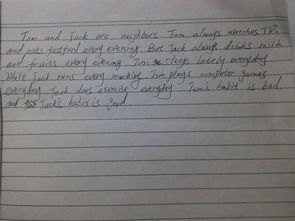 Tom and Jack are neighbors. Tom always watches TV
and eats fastfood every evening. But Jack always drinks milk
and fruits every evening. Tom sleeps lately everyday
While Jack runs every morning. Tom plays computer games
everyday. Jack does exercise everyday. Tom's habit is bad.
and Jack's habit is good.